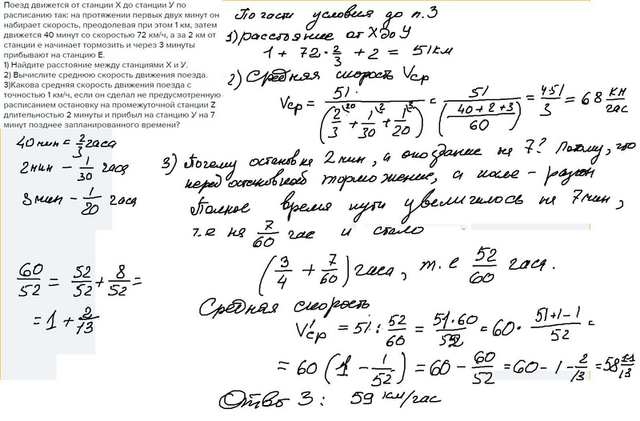 Поезд движется от станции X до станции У по
расписанию так: на протяжении первых двух минут он
набирает скорость, преодолевая при этом 1 км, затем
движется 40 минут со скоростью 72 км/ч, а за 2 км от
станции е начинает тормозить и через 3 минуты
прибывают на станцию Е.
1) Найдите расстояние между станциями X и У.
2) Вычислите среднюю скорость движения поезда.
3)Какова средняя скорость движения поезда с
точностью 1 км/ч, если он сделал не предусмотренную
расписанием остановку на промежуточной станции Z
длительностью 2 минуты и прибыл на станцию У на 7
минут позднее запланированного времени?
40 мин = 2/3 часа
2 мин – 1/30 часа
3 мин – 1/20 часа
60/52 = 52/52 + 8/52 =
= 1 + 2/13
условия до п.3
1) расстояние от X до У
1 + 72 · 2/3 + 2 = 51 км
2) Средняя скорость Vср
Vср = 51 / (2/3 + 1/30 + 1/20) = 51 / ((40+2+3)/60) = 4·51/3 = 68 км/час
3) Почему остановка 2 мин, а опоздание на 7? Потому, что
перед остановкой торможение, а после – разгон
Полное время пути увеличилось на 7 мин,
т.е на 7/60 час и стало
(3/4 + 7/60) часа, т.е 52/60 часа.
Средняя скорость
V'ср = 51 : 52/60 = 51·60/52 = 60 · (51+1-1)/52 =
= 60 (1 - 1/52) = 60 - 60/52 = 60 - 1 - 2/13 = 58 11/13
3: 59 км/час